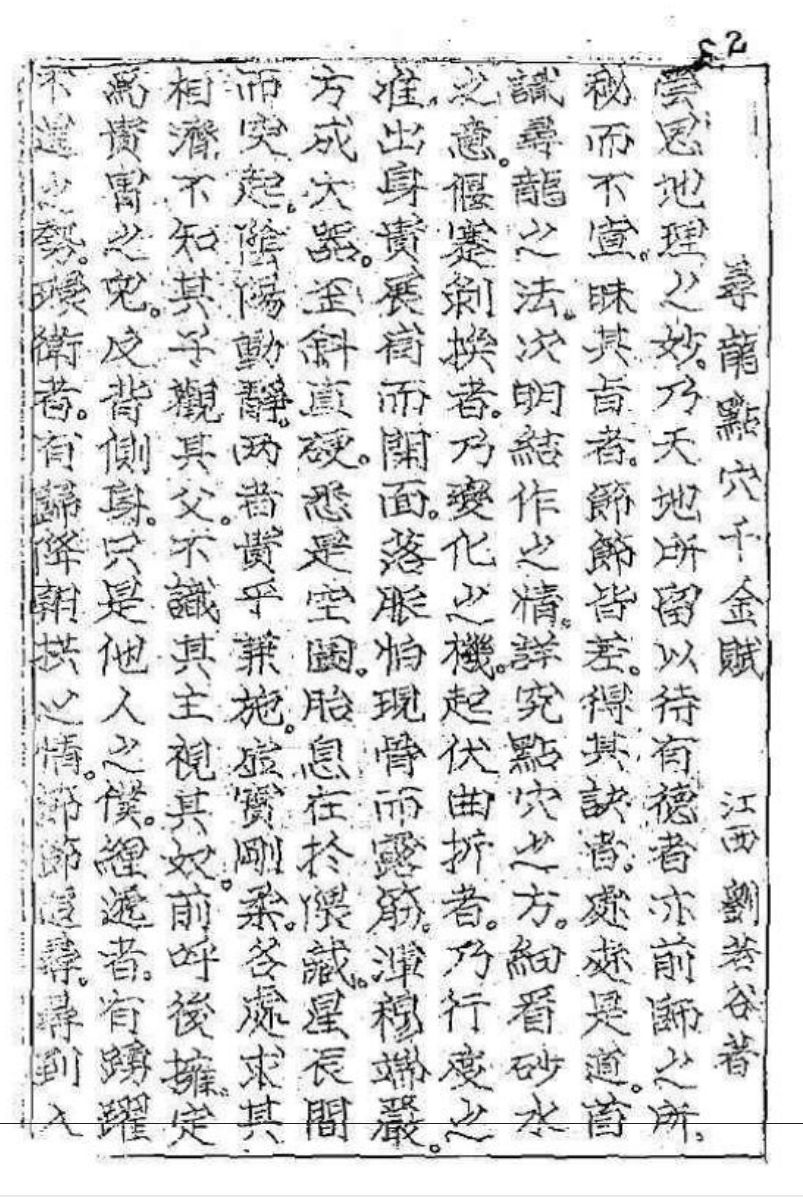 52
尋龍點穴千金賦 江西劉若谷著
嘗思地理之妙。乃天地所留以待有德者亦前師之所
秘而不宣。昧其旨者。節節皆差。得其訣者。處處是道。首
識尋龍之法。次明結作之情。詳究點穴之方。細看砂水
之意。偃蹇剝換者。乃變化之機。起伏曲折者。乃行度之
准。出身貴展 而開面。落脈怕現骨而露筋。渾穆端嚴。
方成大器。歪斜直硬。悉是空 。胎息在於隈藏。星辰間
而突起。陰陽動靜。两者貴乎兼施。虛實剛柔。各處求其
相濟。不知其子觀其父。不識其主視其奴。前呼後擁。定
為貴 之 。反背側身。只是他人之僕。纏 者。有踴躍
不 之勢。 衛者。有歸降朝拱之情。節節追尋。尋到入